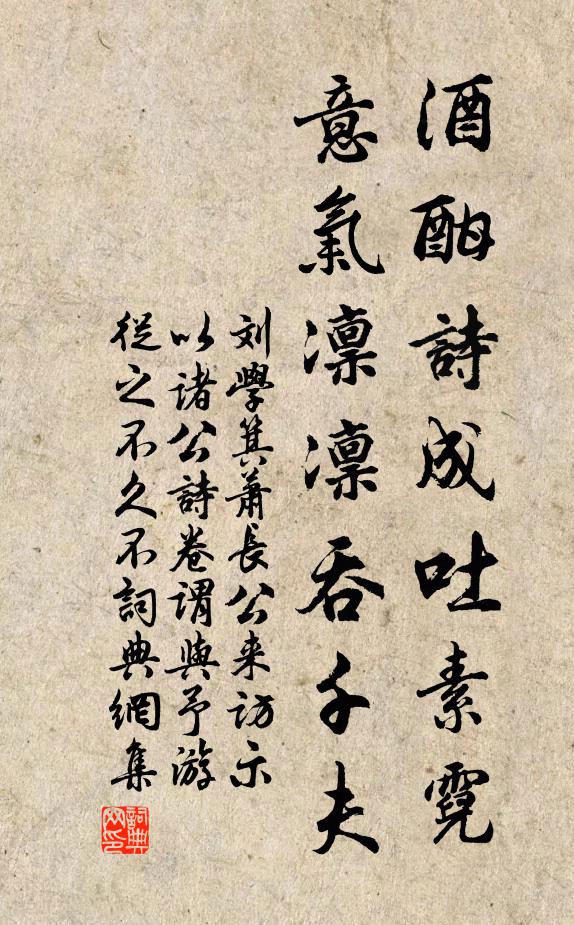 酒酣詩成吐素霓
意氣凜凜吞千夫
刘學箕蕭長公来訪示
以诸公詩卷謂與予游
從之不久不詞典網集
詞典网印